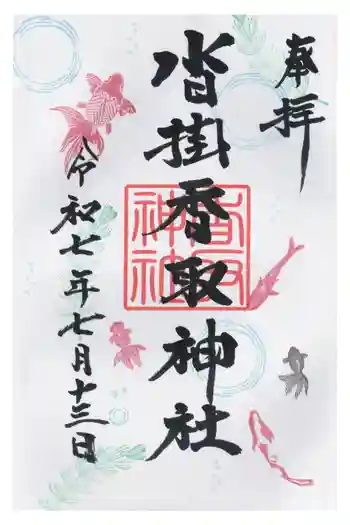 奉拝
沓掛香取神社
香取
神社
令和七年七月十三日